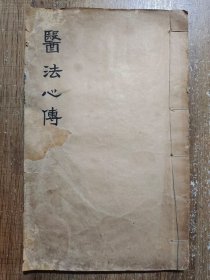 醫法心傳